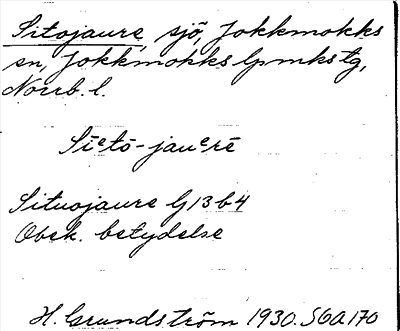 Sitojaure, sjö, Jokkmokks
sn, Jokkmokks lpmkstg,
Norrb. l.
Siᵉtō-jauᵉrē
Situojaure G 13 b 4
Obek. betydelse
H. Grundström 1930. SOA. 170